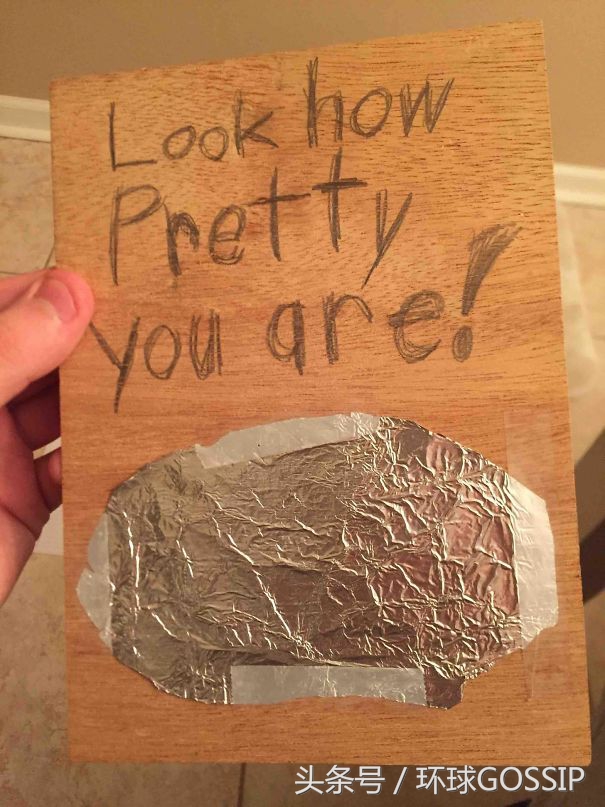 Look how
Pretty
you are!
头条号 / 环球GOSSIP